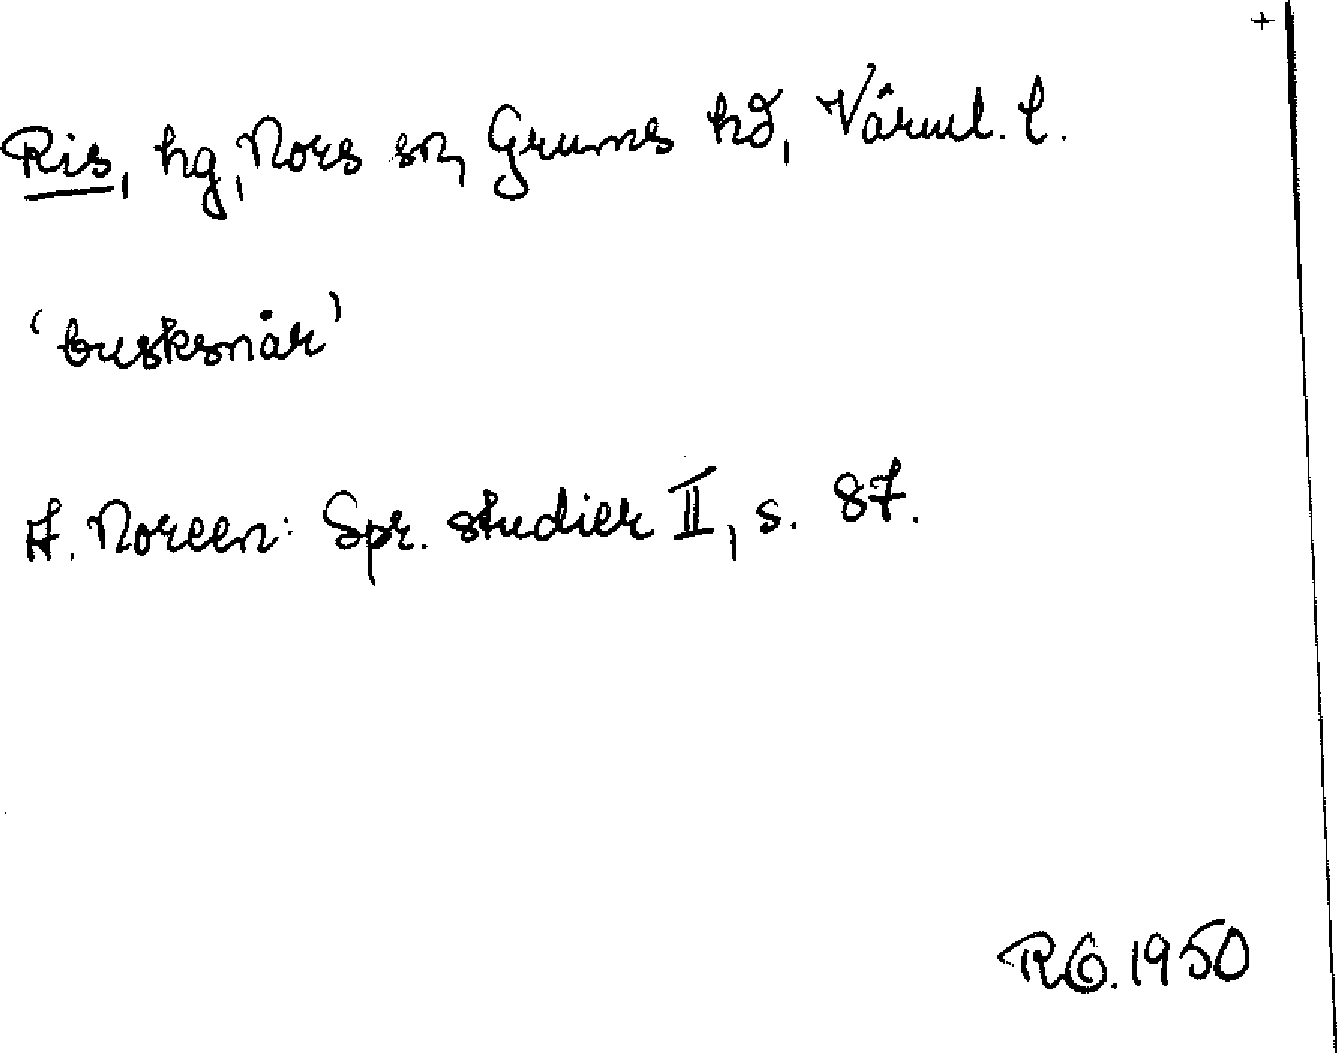 +
Ris, hg, Nors sn, Grums hd, Värml. l.
'busksnår'
A. Noreen: Spr. studier II, s. 87.
RÖ. 1950